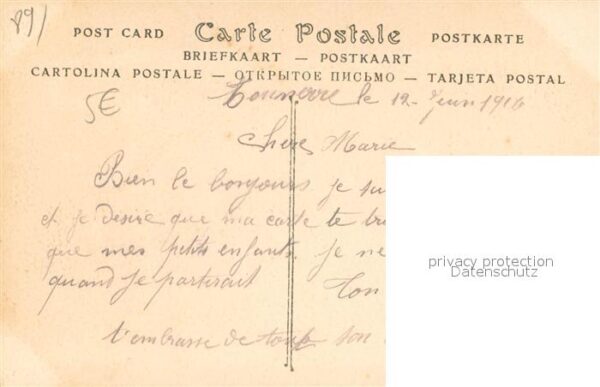 89)
POST CARD Carte Postale POSTKARTE
BRIEFKAART — POSTKAART
CARTOLINA POSTALE — ОТКРЫТОЕ ПИСЬМО — TARJETA POSTAL
5€
Tonnerre le 12 Juin 1916
Chere Marie
Bien le bonjours je
et je desire que ma carte te
que mes petits enfants je ne
quand je partirait Ton
t'embrasse de tout son
privacy protection
Datenschutz